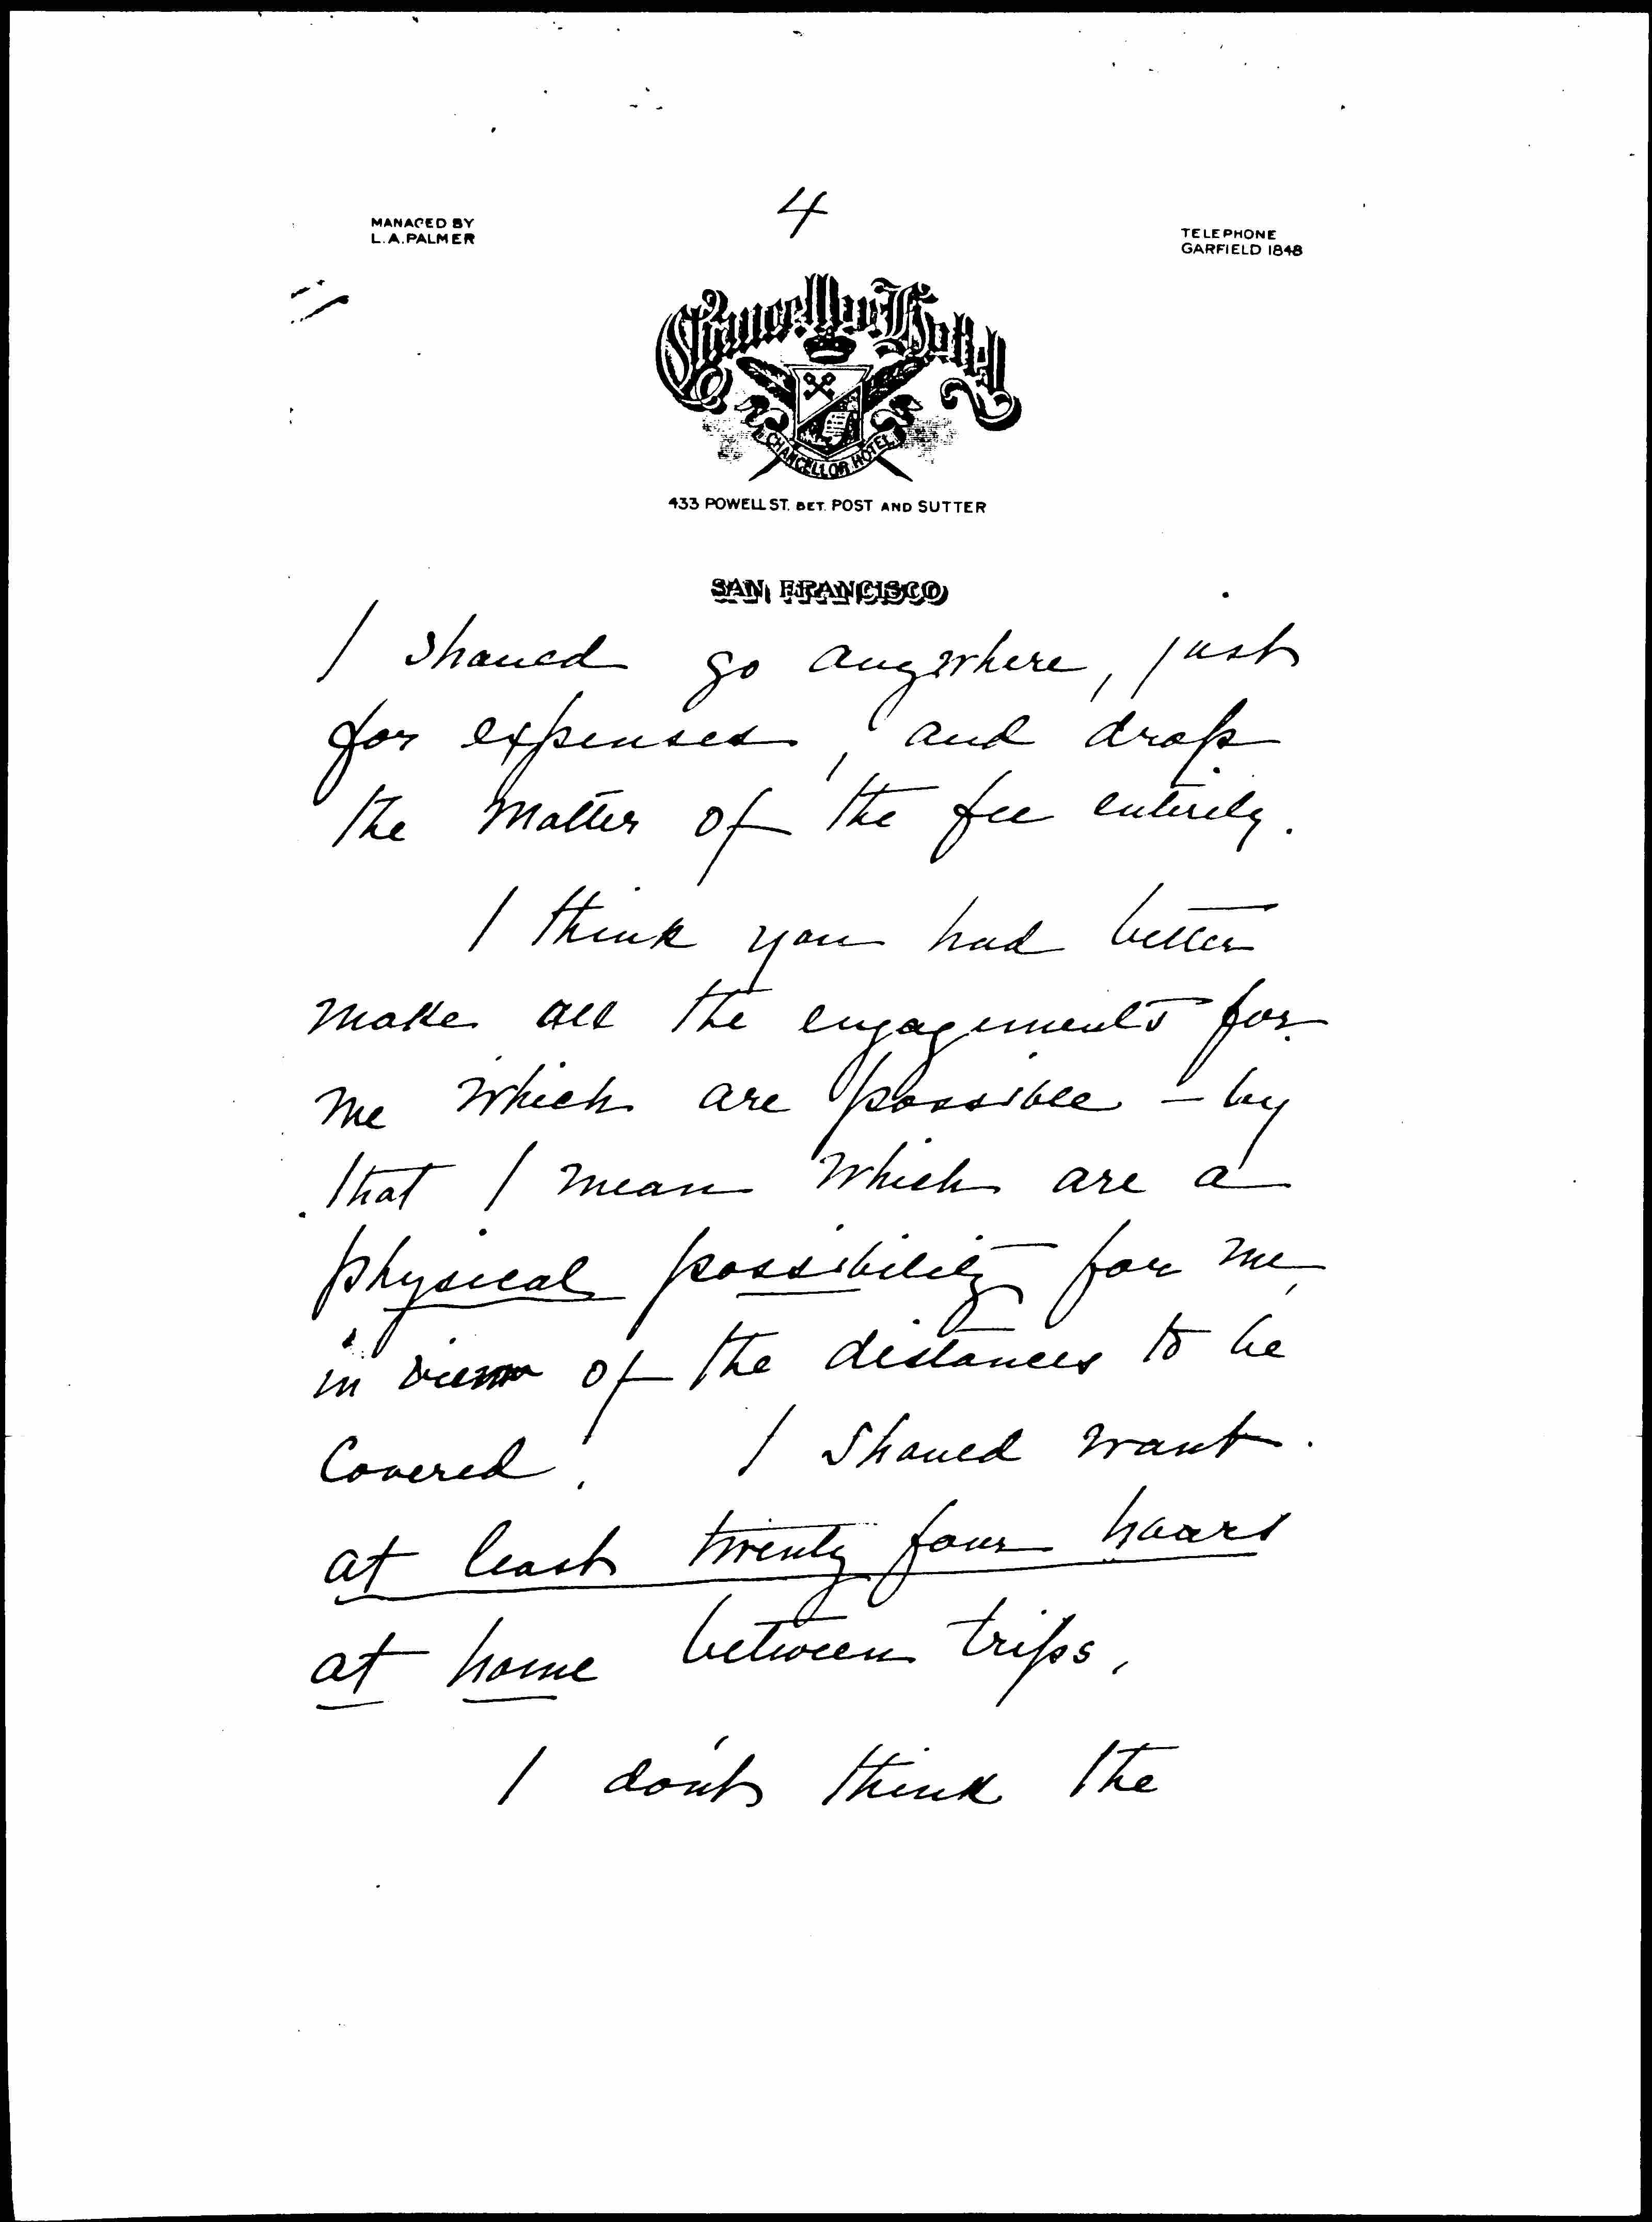 4
MANAGED BY
L.A. PALMER
TELEPHONE
GARFIELD 1848
Chancellor Hotel
CHANCELLOR HOTEL
433 POWELL ST. BET. POST AND SUTTER
SAN FRANCISCO
I should go anywhere, just
for expenses, and drop
the matter of the fee entirely.
I think you had better
make all the engagements for
me which are possible – by
that I mean which are a
physical possibility for me,
in view of the distances to be
covered. I should want
at least twenty four hours
at home between trips.
I don't think the